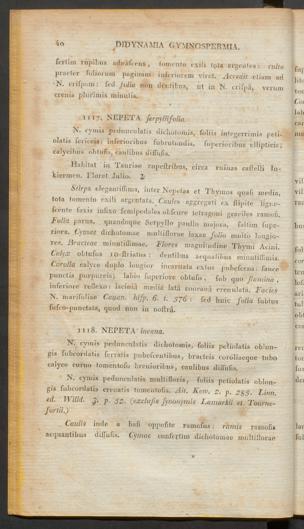 40 DIDYNAMIA GYMNOSPERMIA.
sertim rupibus adnascens, tomento exili tota argentea: culta
praeter foliorum paginam inferiorem viret. Accedit etiam ad
N. crispam: sed folia non dentibus, ut in N. crispâ, verum
crenis plurimis minutis.
1117. NEPETA serpyllifolia.
N. cymis pedunculatis dichotomis, foliis integerrimis peti-
olatis sericeis; inferioribus subrotundis, superioribus ellipticis;
calycibus obtusis, caulibus diffusis.
Habitat in Tauriae rupestribus, circa ruinas castelli In-
kiermen. Floret Julio. ♃
Stirps elegantissima, inter Nepetas et Thymos quasi media,
tota tomento exili argentata. Caules aggregati ex stipite ligne-
scente saxis infixo semipedales obscure tetragoni graciles ramosi.
Folia parua, quandoque Serpyllo paullo majora, saltim supe-
riora. Cymae dichotomae multiflorae laxae folio multo longio-
res. Bracteae minutissimae. Flores magnitudine Thymi Acini.
Calyx obtusus 10-striatus: dentibus aequalibus minutissimis.
Corolla calyce duplo longior incarnata extus pubescens: fauce
punctis purpureis; labio superiore obtuso, sub quo stamina,
inferiore reflexo: lacinia media latâ rotundâ crenulata. Facies
N. marifoliae Cauan. hisp. 6. t. 576: sed huic folia subtus
fusco-punctata, quod non in nostrâ.
1118. NEPETA incana.
N. cymis pedunculatis dichotomis, foliis petiolatis oblon-
gis subcordatis serratis pubescentibus, bracteis coroliaeque tubo
calyce curuo tomentoso breuioribus, caulibus diffusis.
N. cymis pedunculatis multifloris, foliis petiolatis oblon-
gis subcordatis crenatis tomentosis. Ait. Kew. 2. p. 285. Linn.
ed. Willd. 3. p. 52. (exclusis synonymis Lamarkii et Tourne-
fortii.)
Caulis inde a basi opposite ramosus: ramis ramosis
aequantibus diffusis. Cymae confertim dichotomae multiflorae